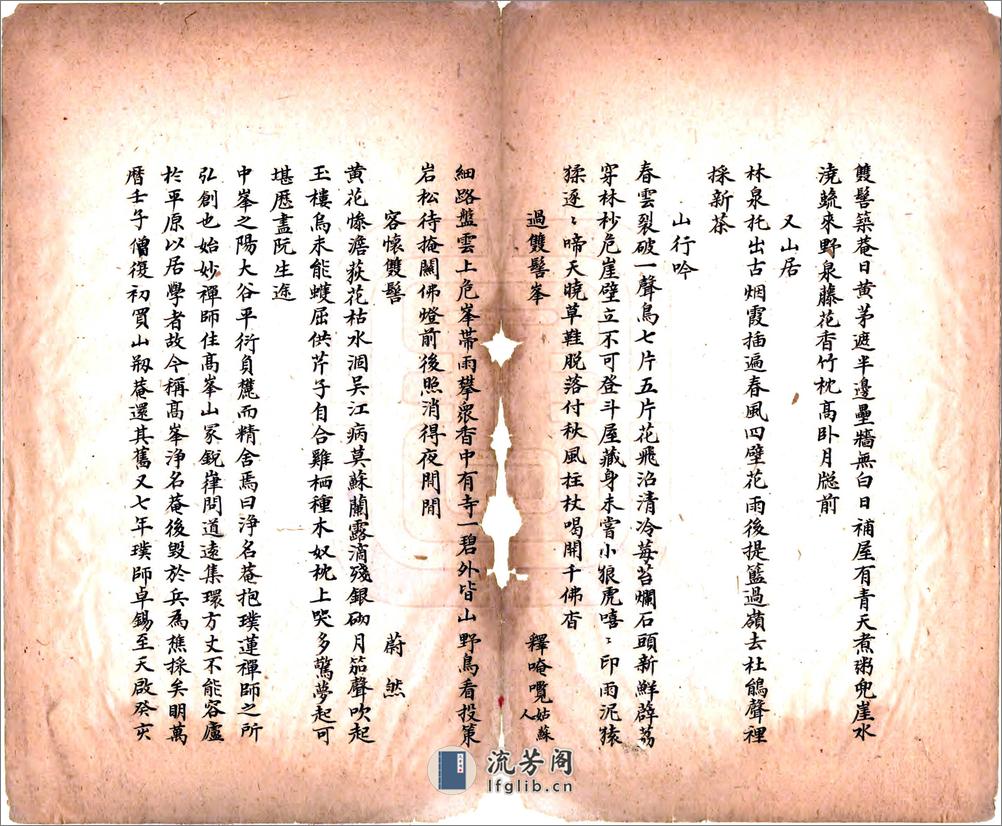 雙髻築菴日黄茅遮半邊壘牆無白日補屋有青天煮粥兜崖水
澆蔬来野泉藤花香竹枕高卧月牕前
又山居
林泉托出古烟霞插遍春風四壁花雨後提籃過嶺去杜鵑聲裡
採新茶
山行吟
春雲裂破一聲鳥七片五片花飛沿清冷莓苔爛石頭新鮮薜荔
穿林杪危崖壁立不可登斗屋藏身未嘗小狼虎嘻〻印雨泥猿
猱逐〻啼天曉草鞋脱落付秋風拄杖喝開千佛杳
過雙髻峯 釋唵囕姑蘇人
細路盤雲上危峯帶雨攀衆香中有寺一碧外皆山野鳥看投策
岩松待掩關佛燈前後照消得夜閒閒
客懷雙髻 蔚然
黄花慘澹荻花枯水涸吴江病莫蘇蘭露滴殘銀砌月笳聲吹起
玉樓烏未能蠖屈供芹子自合雞栖種木奴枕上哭多驚夢起可
堪歷盡阮生途
中峯之陽大谷平衍負麓而精舍焉曰浄名菴抱璞蓮禪師之所
弘創也始妙禪師住高峯山冢鋭嵂問道遠集環方丈不能容廬
於平原以居學者故今稱高峯浄名菴後毀於兵為樵採矣明萬
曆壬子僧復初買山剏菴還其舊又七年璞師卓錫至天啟癸亥
流芳阁
lfglib.cn